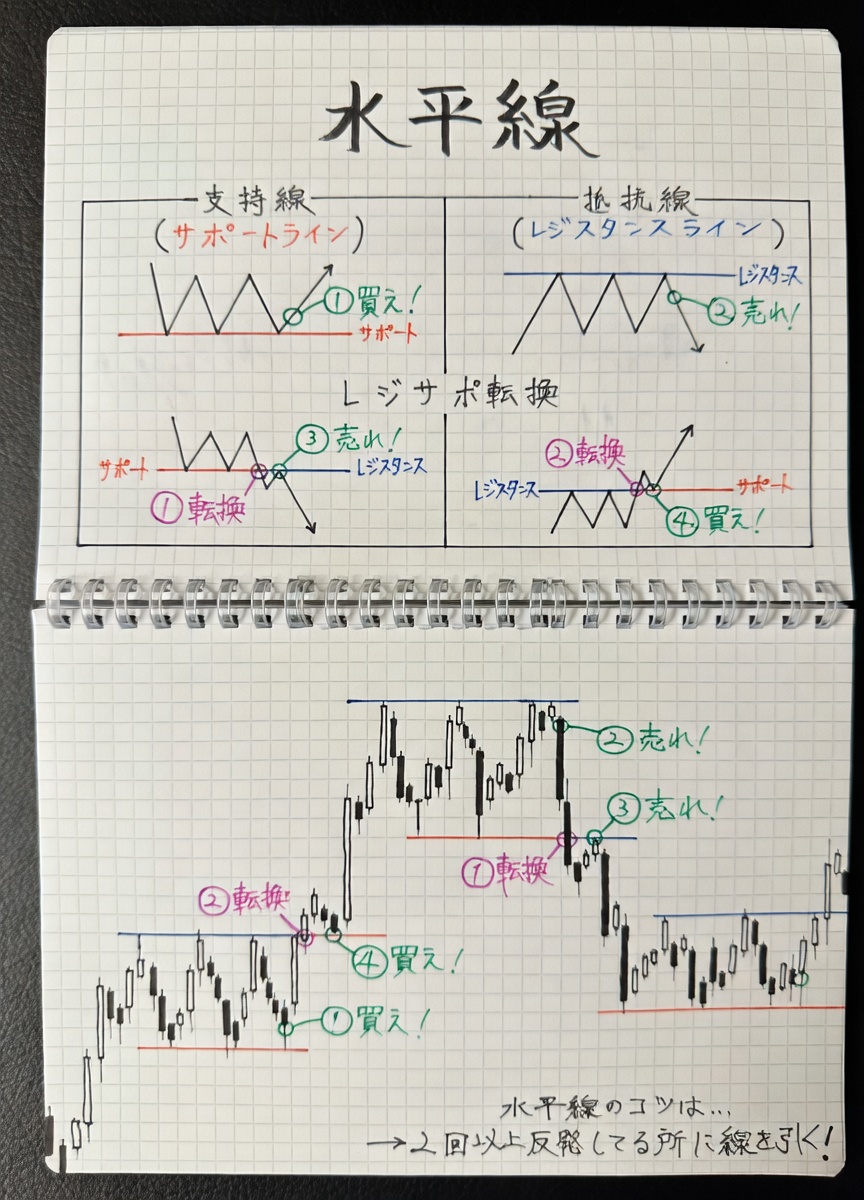 水平線
支持線
(サポートライン)
①買え!
サポート
抵抗線
(レジスタンスライン)
レジスタンス
②売れ!
レジサポ転換
③売れ!
サポート
レジスタンス
①転換
②転換
レジスタンス
サポート
④買え!
②売れ!
③売れ!
①転換
②転換
④買え!
①買え!
水平線のコツは...
→2回以上反発してる所に線を引く!